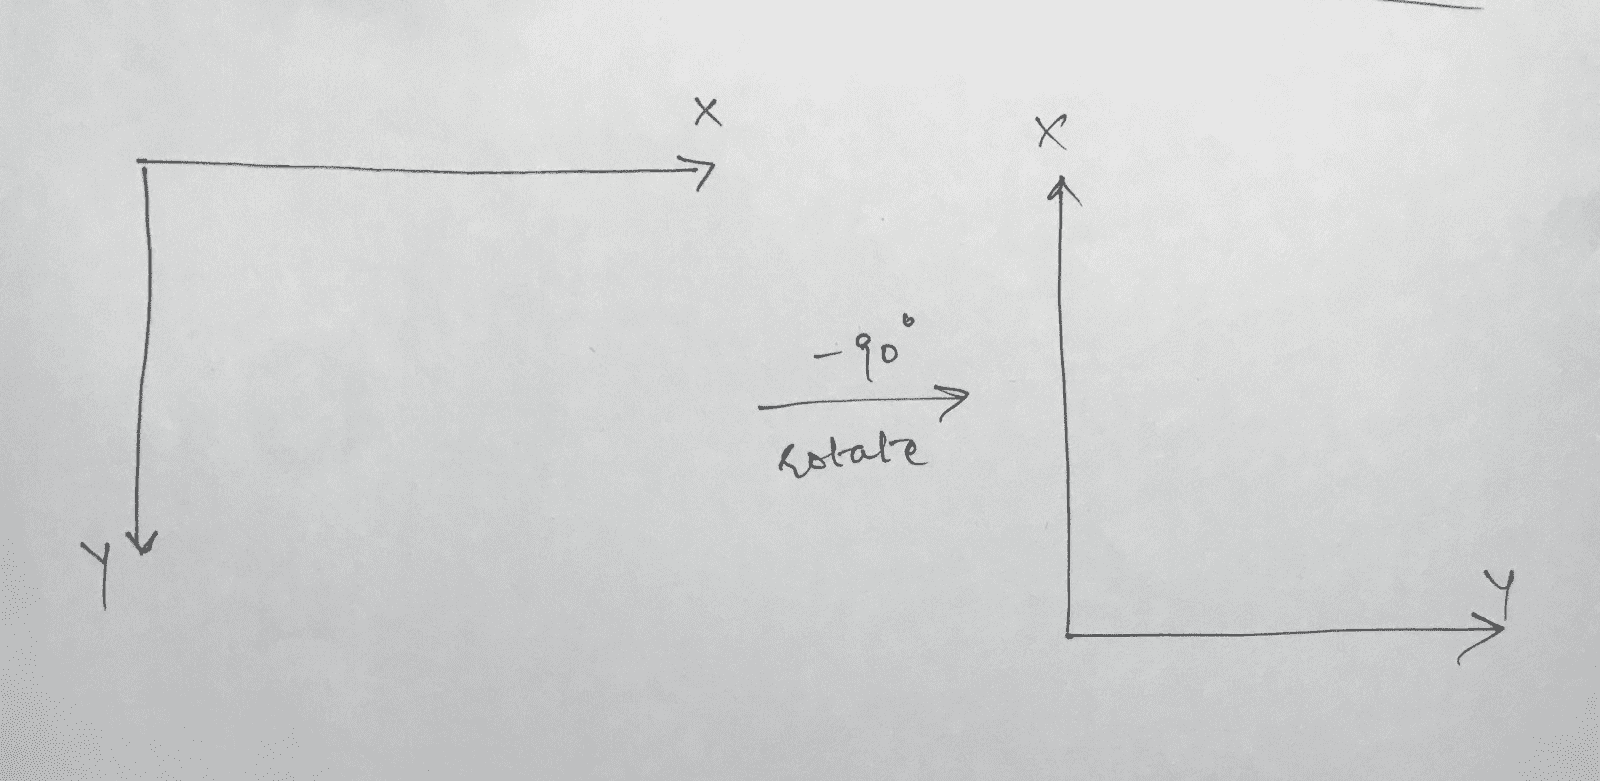 X
X
-90°
rotate
Y
Y